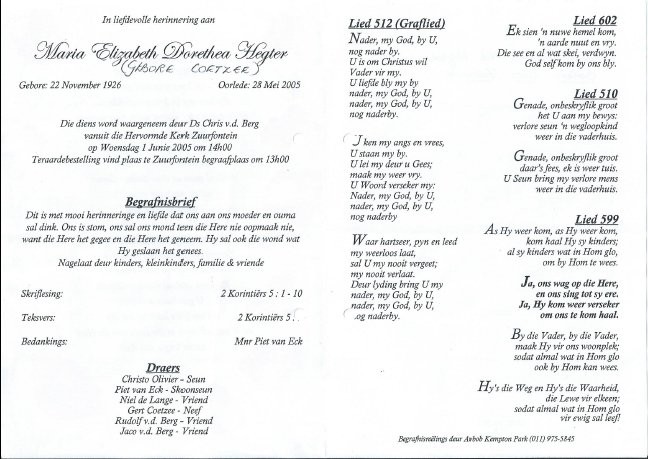 In liefdevolle herinnering aan
Maria Elizabeth Dorothea Hegter
(GEBORE COETZER)
Gebore: 22 November 1926 Oorlede: 28 Mei 2005
Die diens word waargeneem deur Ds Chris v.d. Berg
vanuit die Hervormde Kerk Zuurfontein
op Woensdag 1 Junie 2005 om 14h00
Teraardebestelling vind plaas te Zuurfontein begraafplaas om 13h00
Begrafnisbrief
Dit is met mooi herinneringe en liefde dat ons aan ons moeder en ouma
sal dink. Ons is stom, ons sal ons mond teen die Here nie oopmaak nie,
want die Here het gegee en die Here het geneem. Hy sal ook die wond wat
Hy geslaan het genees.
Nagelaat deur kinders, kleinkinders, familie & vriende
Skriflesing: 2 Korintiërs 5 : 1 - 10
Teksvers: 2 Korintiërs 5 :
Bedankings: Mnr Piet van Eck
Draers
Christo Olivier - Seun
Piet van Eck - Skoonseun
Niel de Lange - Vriend
Gert Coetzee - Neef
Rudolf v.d. Berg - Vriend
Jaco v.d. Berg - Vriend
Lied 512 (Graflied)
Nader, my God, by U,
nog nader by.
U is om Christus wil
Vader vir my.
U liefde bly my by
nader, my God, by U,
nader, my God, by U,
nog naderby.
Ik ken my angs en vrees,
U staan my by.
U lei my deur u Gees;
maak my weer vry.
U Woord verseker my:
Nader, my God, by U,
nader, my God, by U,
nog naderby
Waar hartseer, pyn en leed
my weerloos laat,
sal U my nooit vergeet;
my nooit verlaat.
Deur lyding bring U my
nader, my God, by U,
nader, my God, by U,
.og naderby.
Lied 602
Ek sien 'n nuwe hemel kom,
'n aarde nuut en vry.
Die see en al wat skei, verdwyn.
God self kom by ons bly.
Lied 510
Genade, onbeskryflik groot
het U aan my bewys:
verlore seun 'n wegloopkind
weer in die vaderhuis.
Genade, onbeskryflik groot
daar's fees, ek is weer tuis.
U Seun bring my verlore mens
weer in die vaderhuis.
Lied 599
As Hy weer kom, as Hy weer kom,
kom haal Hy sy kinders;
al sy kinders wat in Hom glo,
om by Hom te wees.
Ja, ons wag op die Here,
en ons sing tot sy ere.
Ja, Hy kom weer verseker
om ons te kom haal.
By die Vader, by die Vader,
maak Hy vir ons woonplek;
sodat almal wat in Hom glo
ook by Hom kan wees.
Hy's die Weg en Hy's die Waarheid,
die Lewe vir elkeen;
sodat almal wat in Hom glo
vir ewig sal leef!
Begrafnisreëlings deur Avbob Kempton Park (011) 975-5845